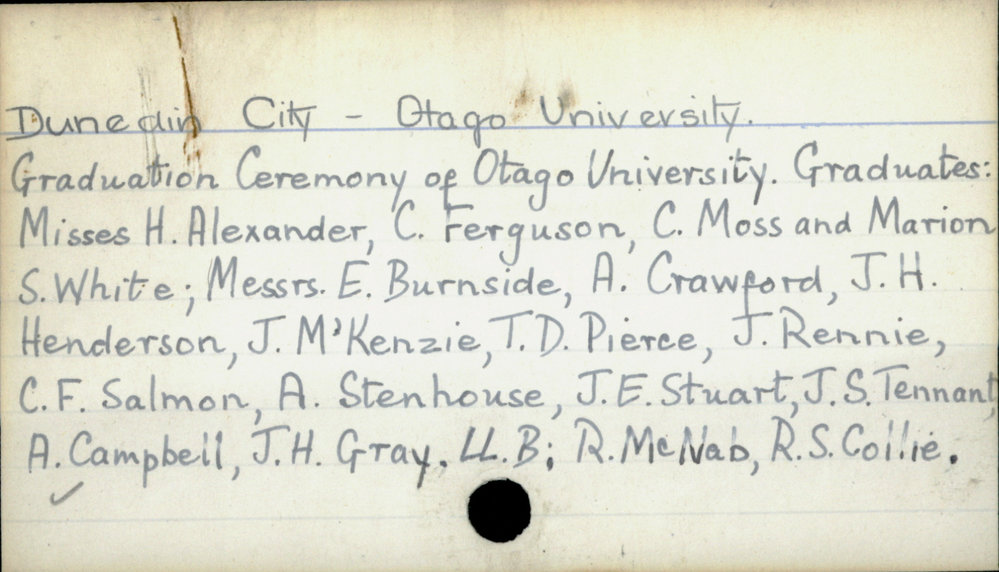 Dunedin City - Otago University.
Graduation Ceremony of Otago University. Graduates:
Misses H. Alexander, C. Ferguson, C. Moss and Marion
S. White; Messrs. E. Burnside, A. Crawford, J. H.
Henderson, J. M'Kenzie, T. D. Pierce, J. Rennie,
C. F. Salmon, A. Stenhouse, J. E. Stuart, J. S. Tennant
A. Campbell, J. H. Gray. LL.B; R. McNab, R. S. Collie.